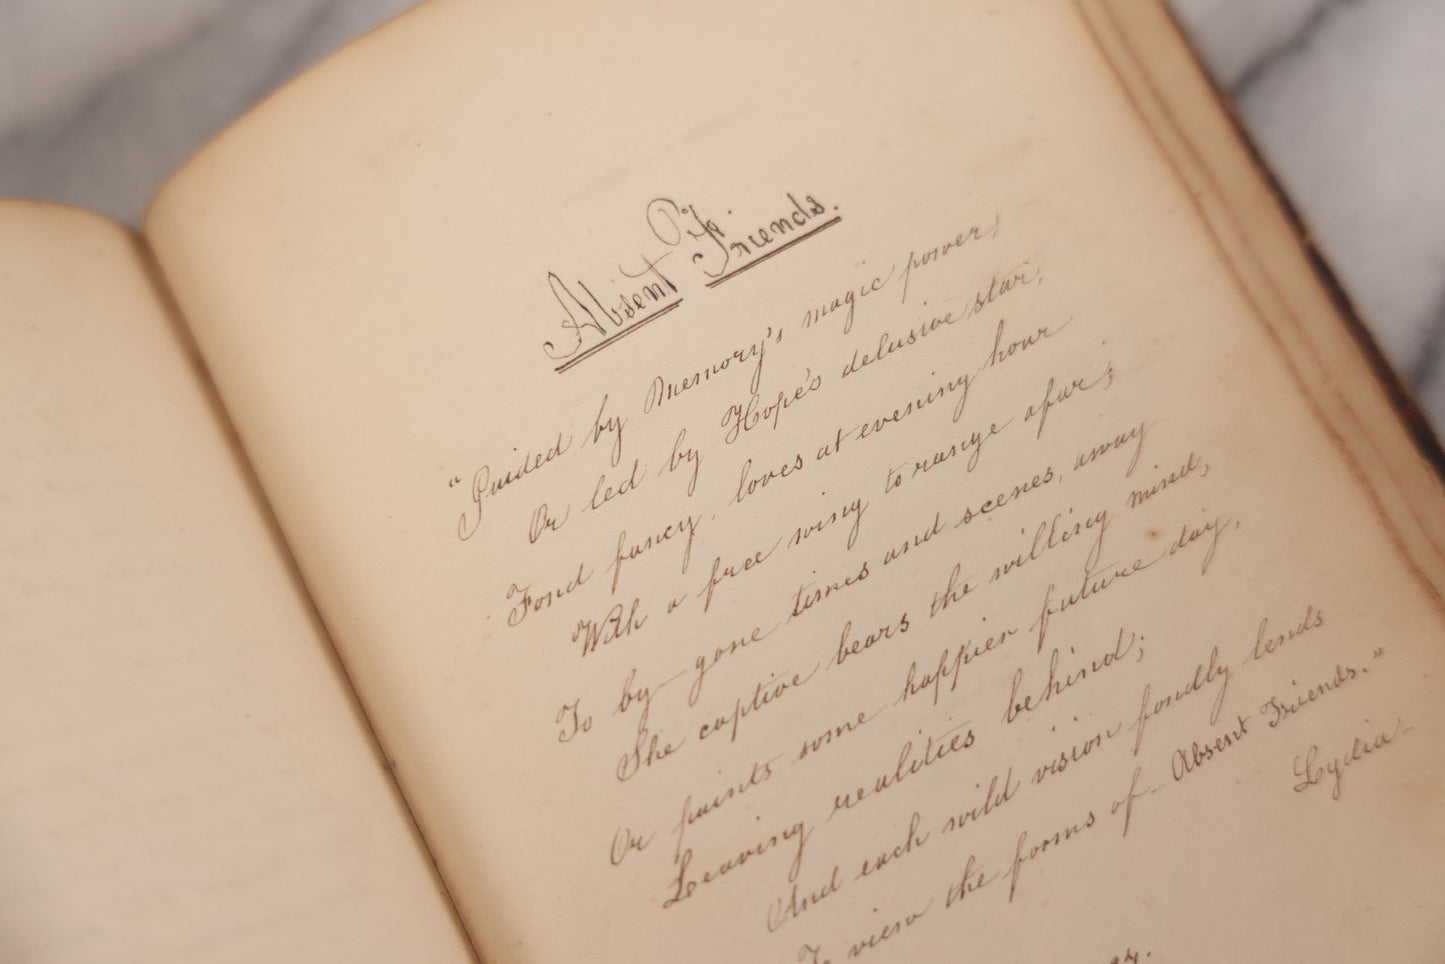 Absent Friends.
"Guided by Memory's magic power,
Or led by Hope's delusive star,
Fond fancy, loves at evening hour
With a free wing to range afar;
To by-gone times and scenes, away
She captive bears the willing mind,
Or paints some happier future day,
Leaving realities behind;
And each wild vision fondly lends
To view the forms of Absent Friends."
Lydia